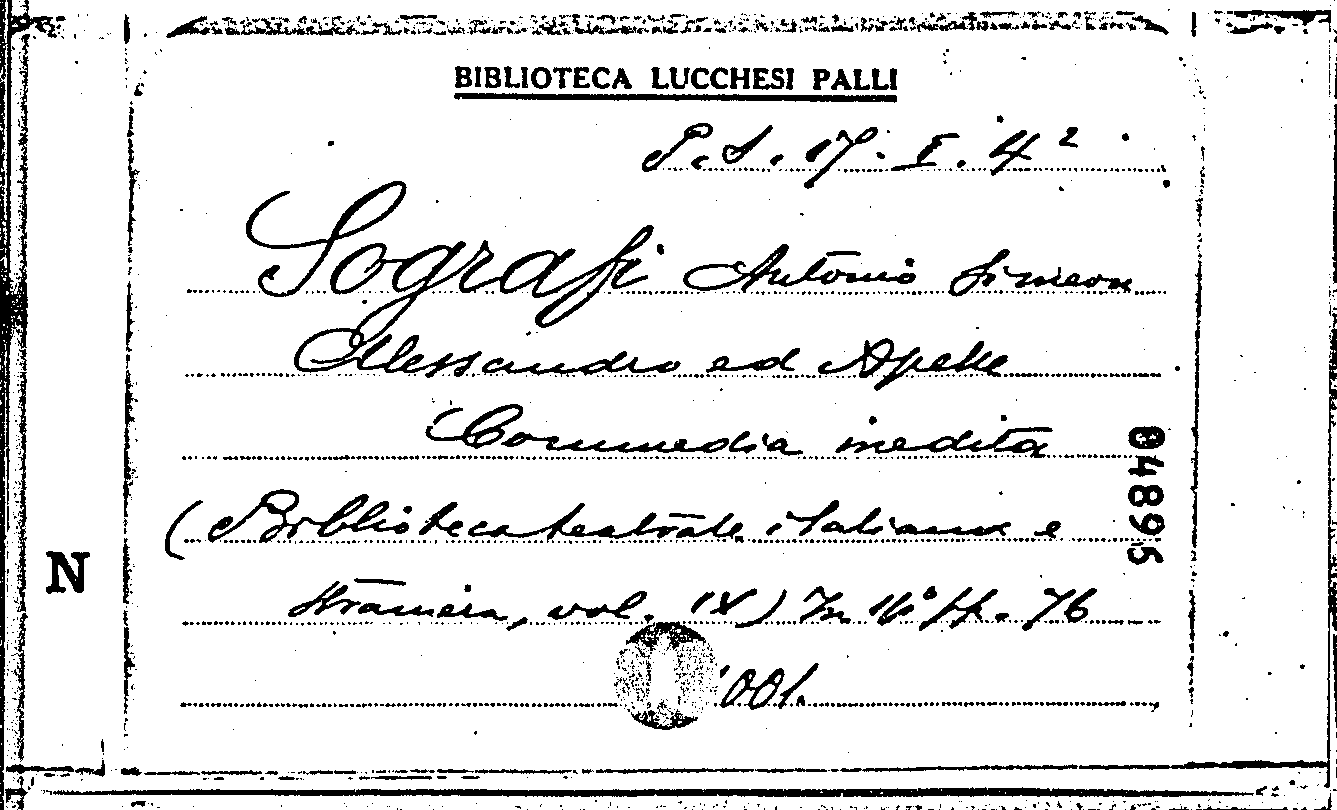 BIBLIOTECA LUCCHESI PALLI
P.S. 17. I. 4²
Sografi Antonio Simeon
Alessandro ed Apelle
Commedia inedita
(Biblioteca teatrale italiana e
straniera, vol. IX) In 16° pp. 76
001.
04895
N